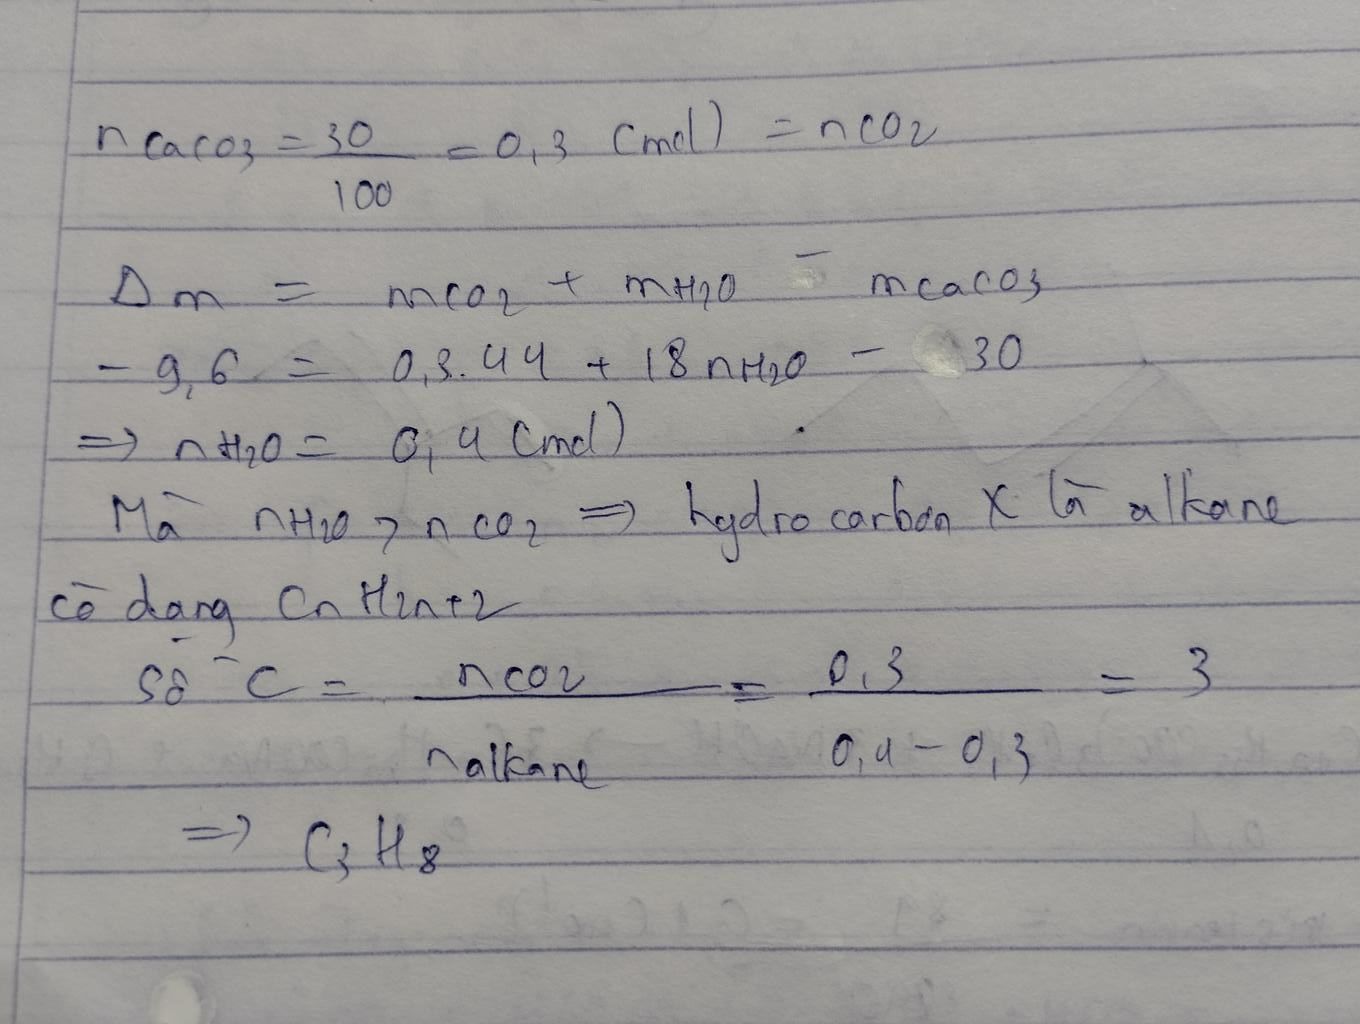 n CaCO3 = 30/100 = 0,3 (mol) = nCO2
Δm = mCO2 + mH2O - mCaCO3
- 9,6 = 0,3.44 + 18 nH2O - 30
=> nH2O = 0,4 (mol)
Mà nH2O > nCO2 => hydrocarbon X là alkane
có dạng CnH2n+2
Số C = nCO2/nalkane = 0,3/0,4-0,3 = 3
=> C3H8